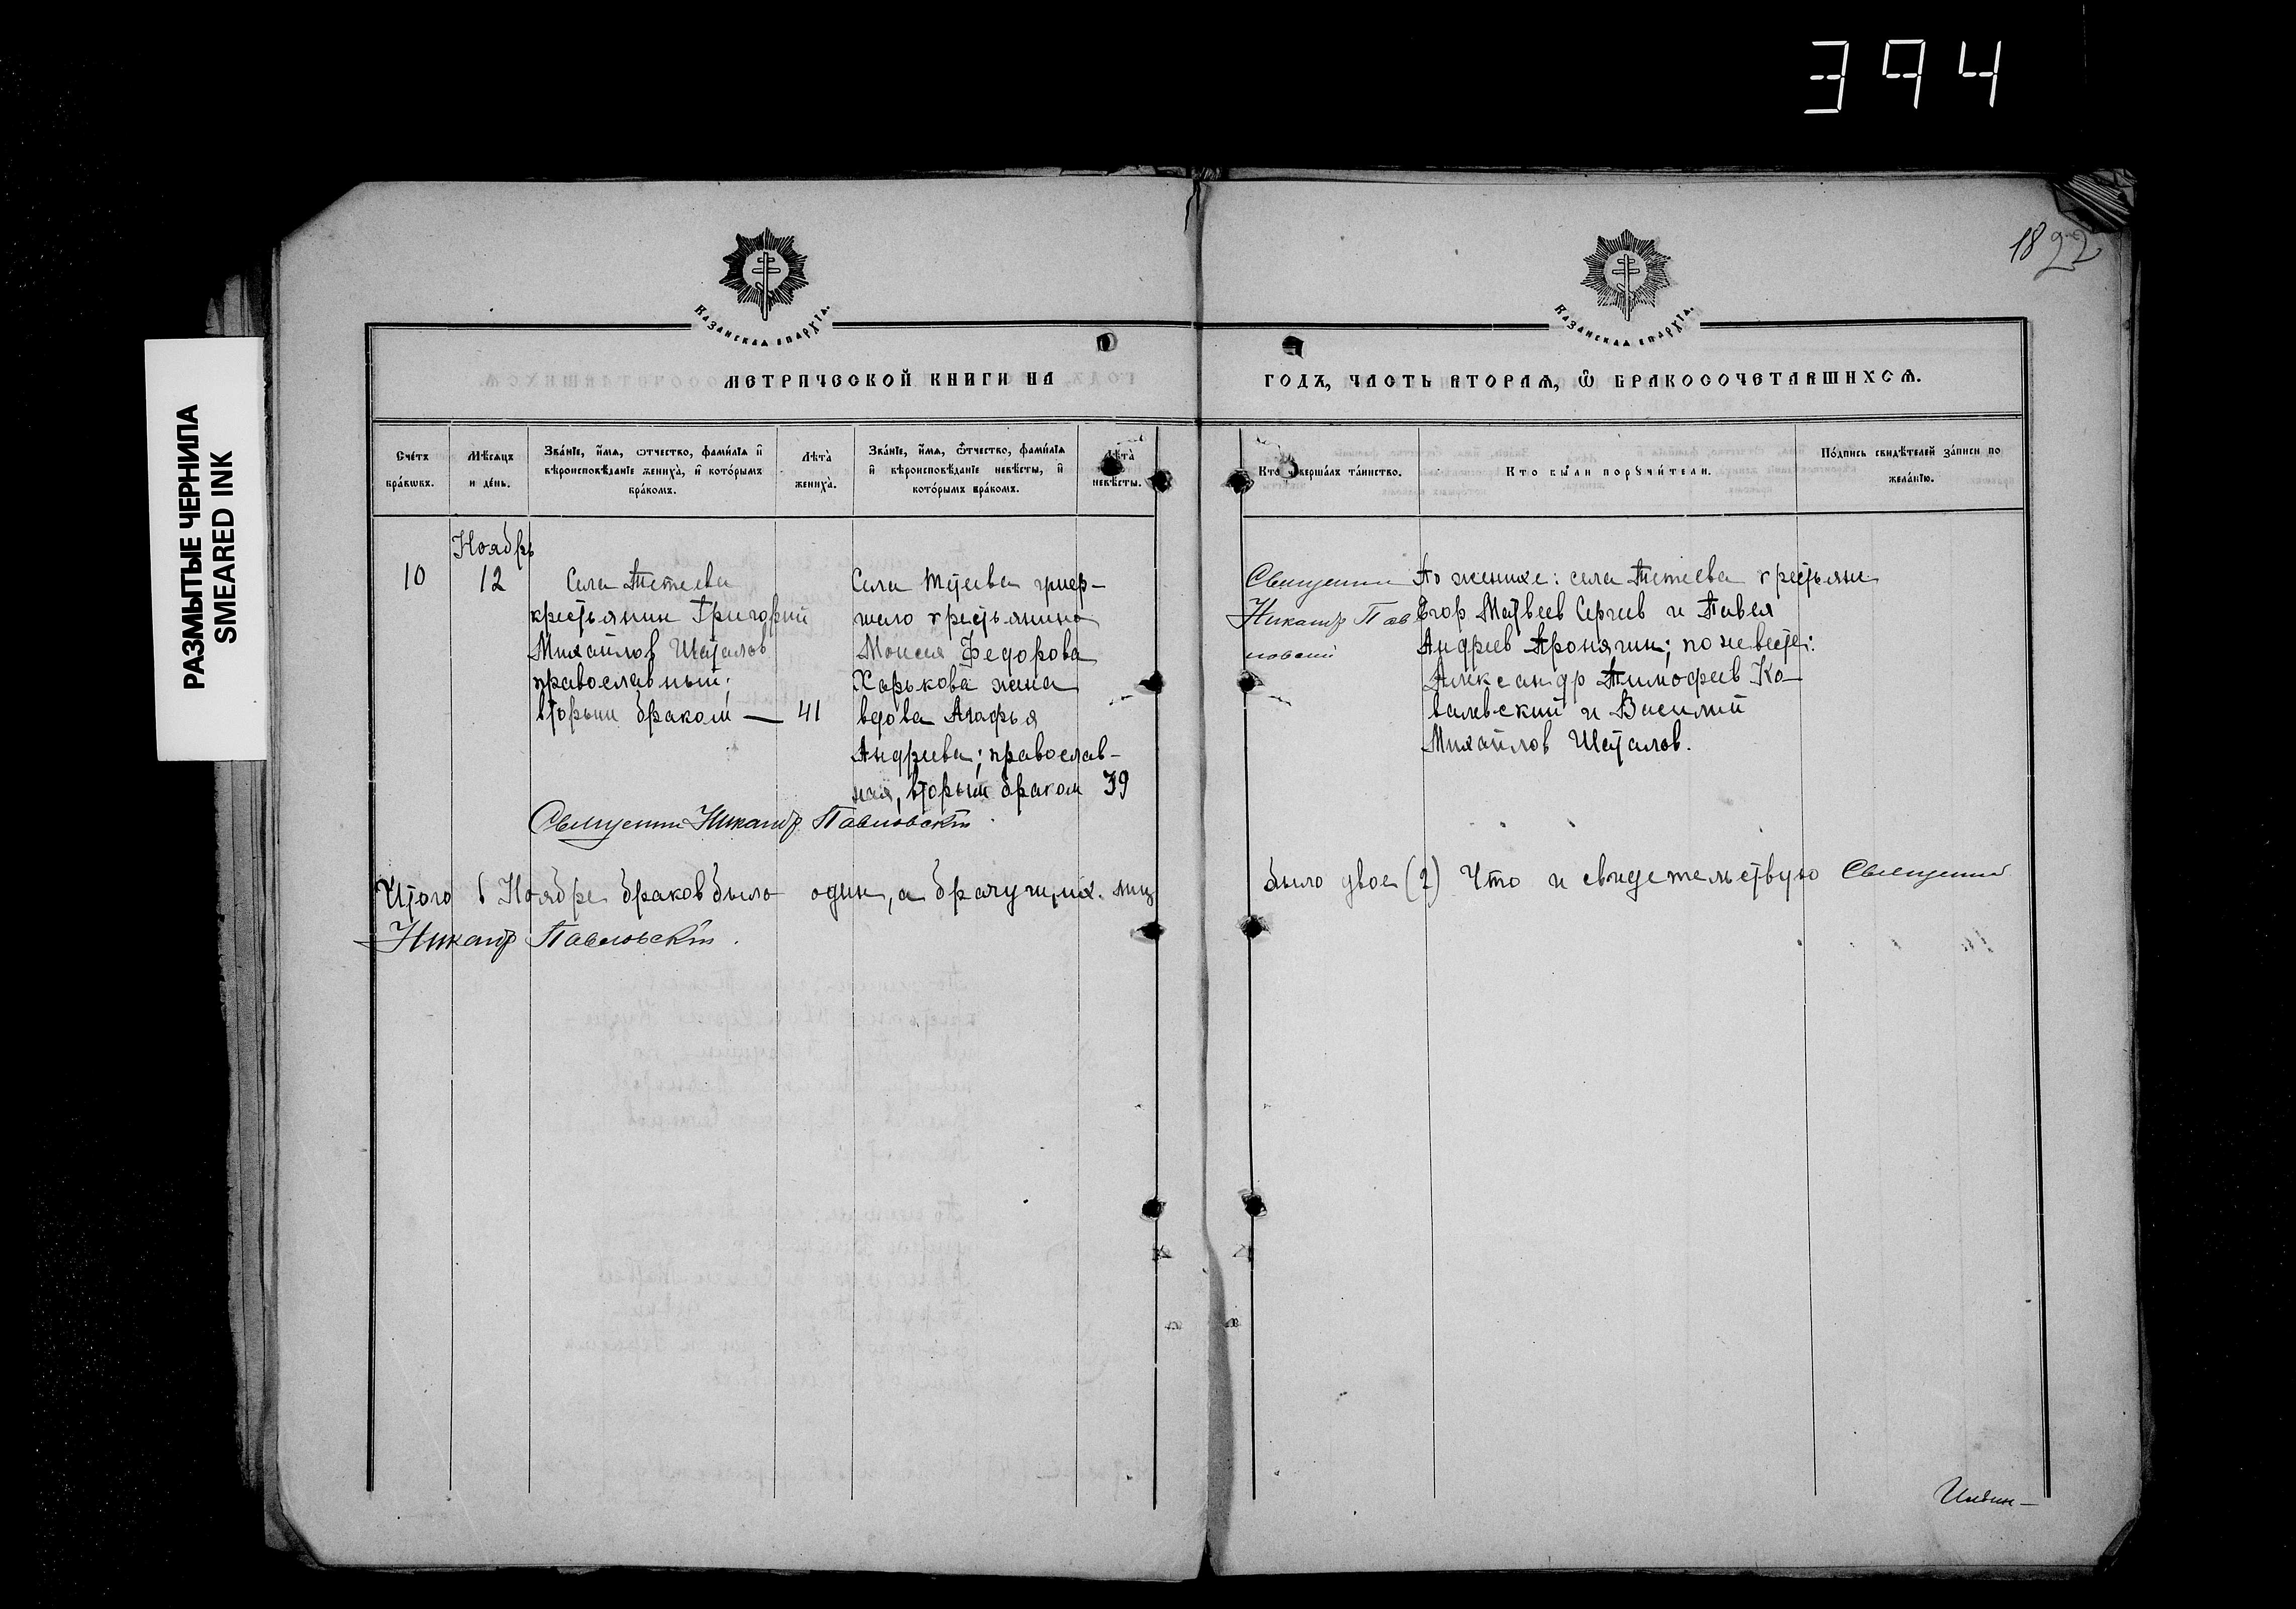 394
1822
РАЗМЫТЫЕ ЧЕРНИЛА
SMEARED INK
КАЗАНСКАѦ ЕПАРХІА.
КАЗАНСКАѦ ЕПАРХІА.
МЕТРИЧЕСКОЙ КНИГИ НА
ГОДЪ, ЧАСТЬ ВТОРАѦ, Ѡ БРАКОСОЧЕТАВШИХСѦ.
Сче́тъ бра́кѡвъ.
Мѣ́сѧцъ и де́нь.
Зва́нїе, и́мѧ, ѻтчество, фами́лїѧ и҆ вѣроисповѣ́данїе жениха̀, и҆ кото́рымъ бра́комъ.
Лѣта̀ жениха̀.
Зва́нїе, и́мѧ, ѻтчество, фами́лїѧ и҆ вѣроисповѣ́данїе невѣ́сты, и҆ кото́рымъ бра́комъ.
Лѣта̀ невѣ́сты.
Кто̀ соверша́лъ та́инство.
Кто̀ бы́ли порꙋчи́тели.
По́дпись свидѣ́телей за́писи по жела́нїю.
Ноябрь
10
12
Села Тетеева
крестьянин Григорий
Михайлов Шаталов
православный;
вторым браком — 41
Села Тетеева умер-
шаго крестьянина
Моисея Федорова
Харькова жена
вдова Агафья
Андреева; православ-
ная, вторым браком 39
Священник
Никандр Пав
ловский
По женихе: села Тетеева крестьяне
Егор Матвеев Сергеев и Павел
Андреев Аронягин; по невесте:
Александр Тимофеев Ко-
валевский и Василий
Михайлов Шаталов.
Священник Никандр Павловскій
Итого в Ноябре браков было один, а брачущихся лиц
было двое (2) Что и свидетельствую Священник
Никандр Павловскій.